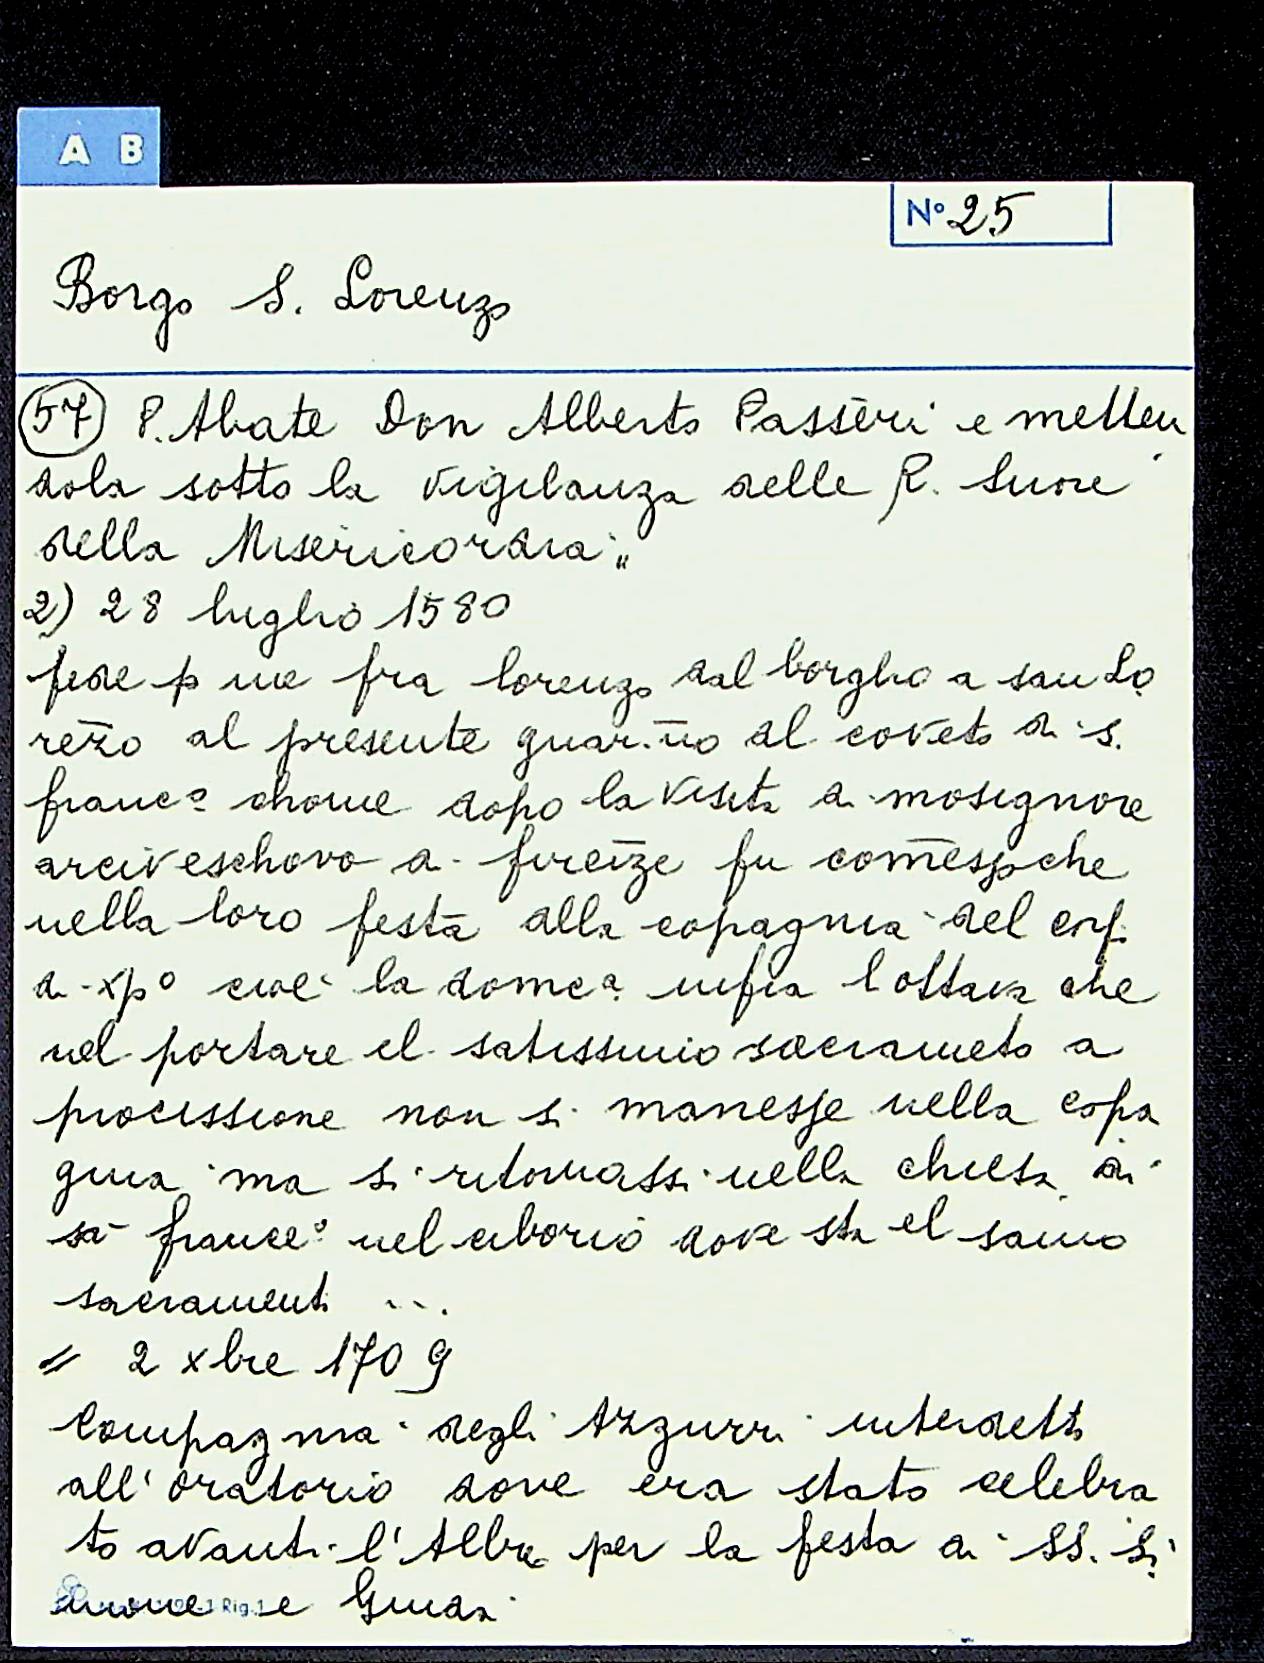 A B
N° 25
Borgo S. Lorenzo
57 P. Abate Don Alberto Passeri e metten
dola sotto la vigilanza delle R. Suore
della Misericordia „
2) 28 luglio 1580
fede p me fra lorenzo dal borgho a san Lo
rēzo al presente guar.no al coveto di s.
franc° chome dopo la visita di mosignore
arciveschovo di fireīze fu comēsso che
nella loro festa alla copagnia del corp.
di xp° cioè la domca infra l ottava che
nel portare el satissimio sacrameto a
processione non si manesse nella copa
gnia ma si ritornassi nella chiesa di
sā france° nel ciborio dove sta el samo
sacramenti ...
= 2 xbre 1709
Compagnia degli Azzurri interdetto
all' oratorio dove era stato celebra
to avanti l' Alba per la festa di SS. Si
mone e Giuda.
Rig. 1